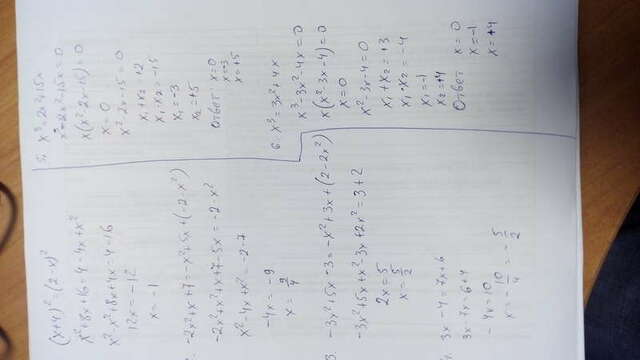 (x+4)² = (2-x)²
x²+8x+16=4-4x+x²
x²-x²+8x+4x=4-16
12x=-12
x=-1
-2x²+x+7=-x²+5x+(-2-x²)
-2x²+x²+x+7-5x=-2-x²
x²-4x+x²=-2-7
-4x=-9
x=9/4
3. -3x²+5x+3=-x²+3x+(2-2x²)
-3x²+5x+x²-3x+2x²=3+2
2x=5
x=5/2
3x-4=7x+6
3x-7x=6+4
-4x=10
x=-10/4=-5/2
5. x³=2x²+15x
x³-2x²-15x=0
x(x²-2x-15)=0
x=0
x²-2x-15=0
x₁+x₂=+2
x₁·x₂=-15
x₁=-3
x₂=+5
Ответ x=0
x=-3
x=+5
6. x³=3x²+4x
x³-3x²-4x=0
x(x²-3x-4)=0
x=0
x²-3x-4=0
x₁+x₂=+3
x₁·x₂=-4
x₁=-1
x₂=+4
Ответ x=0
x=-1
x=+4